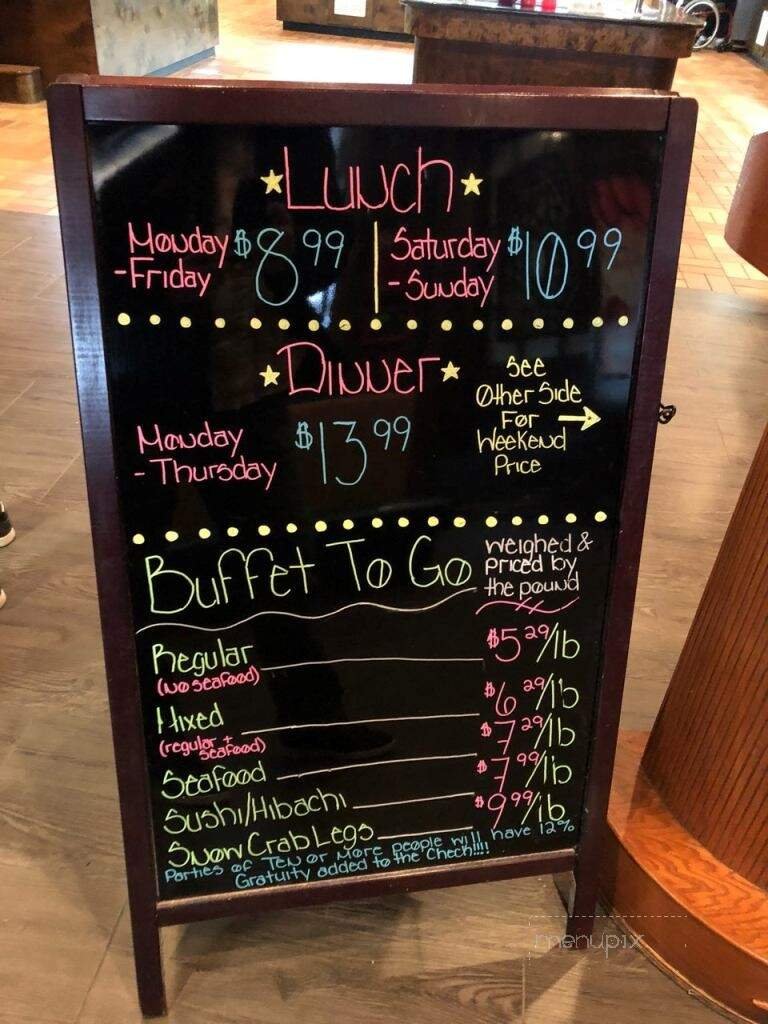 Lunch
Monday $8.99 Saturday $10.99
-Friday -Sunday
Dinner
See
Other Side
For
Weekend
Price
Monday $13.99
- Thursday
Buffet To Go
weighed &
priced by
the pound
Regular $5.29/lb
(no seafood)
Mixed $6.29/lb
(regular +
seafood)
Seafood $7.29/lb
Sushi/Hibachi $7.99/lb
Snow Crab Legs $9.99/lb
Parties of Ten or More people will have 12%
Gratuity added to the Check!!!!
menupix